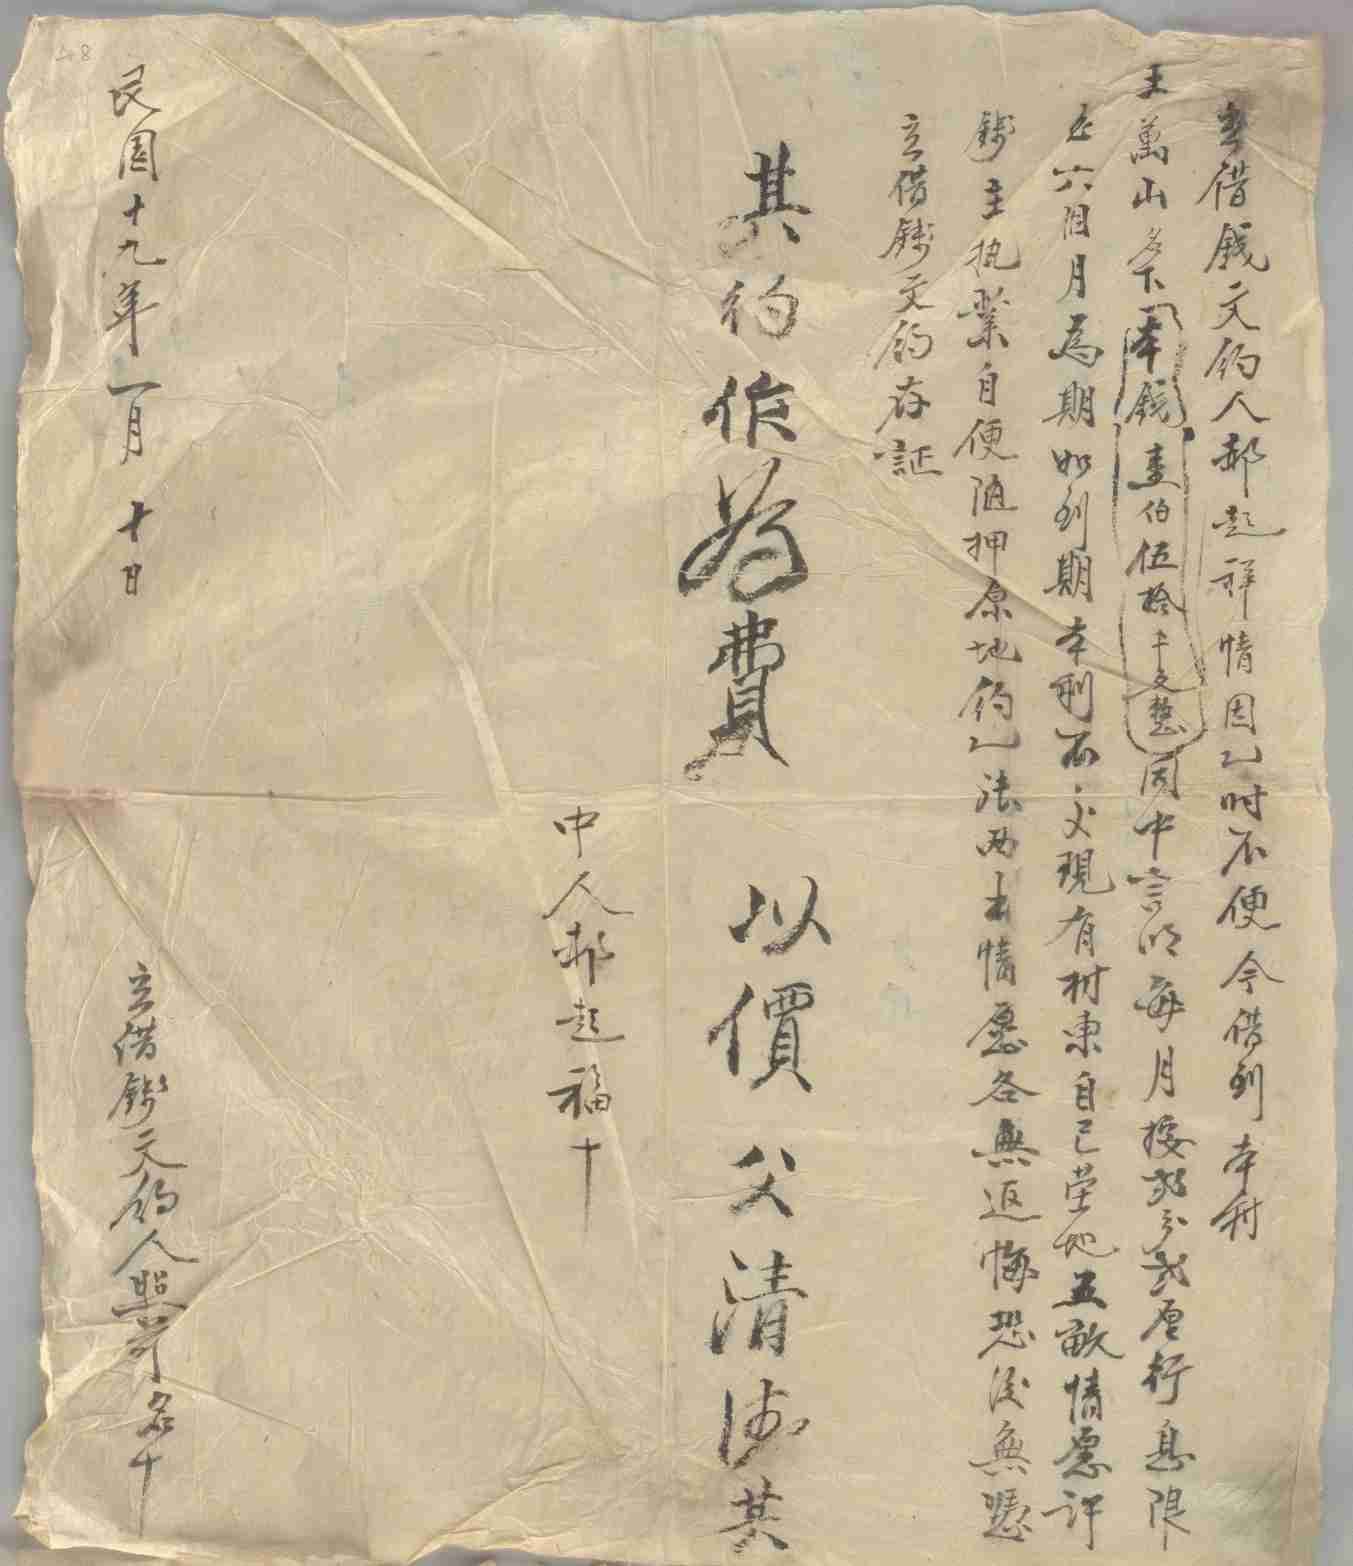 立借錢文約人郝起祥情因乙時不便今借到本村
王萬山名下本錢壹伯伍拾千文整同中言明每月按弍分弍厘行息限
至六個月為期如到期本利不交現有村東自己塋地五畝情愿許
錢主執業自便隨押原地約乙張两出情愿各無返悔恐後無憑
立借錢文約存証
其約作為費 以價父清 其
中人郝起福十
民國十九年一月 十日
立借錢文約人照前名十
48